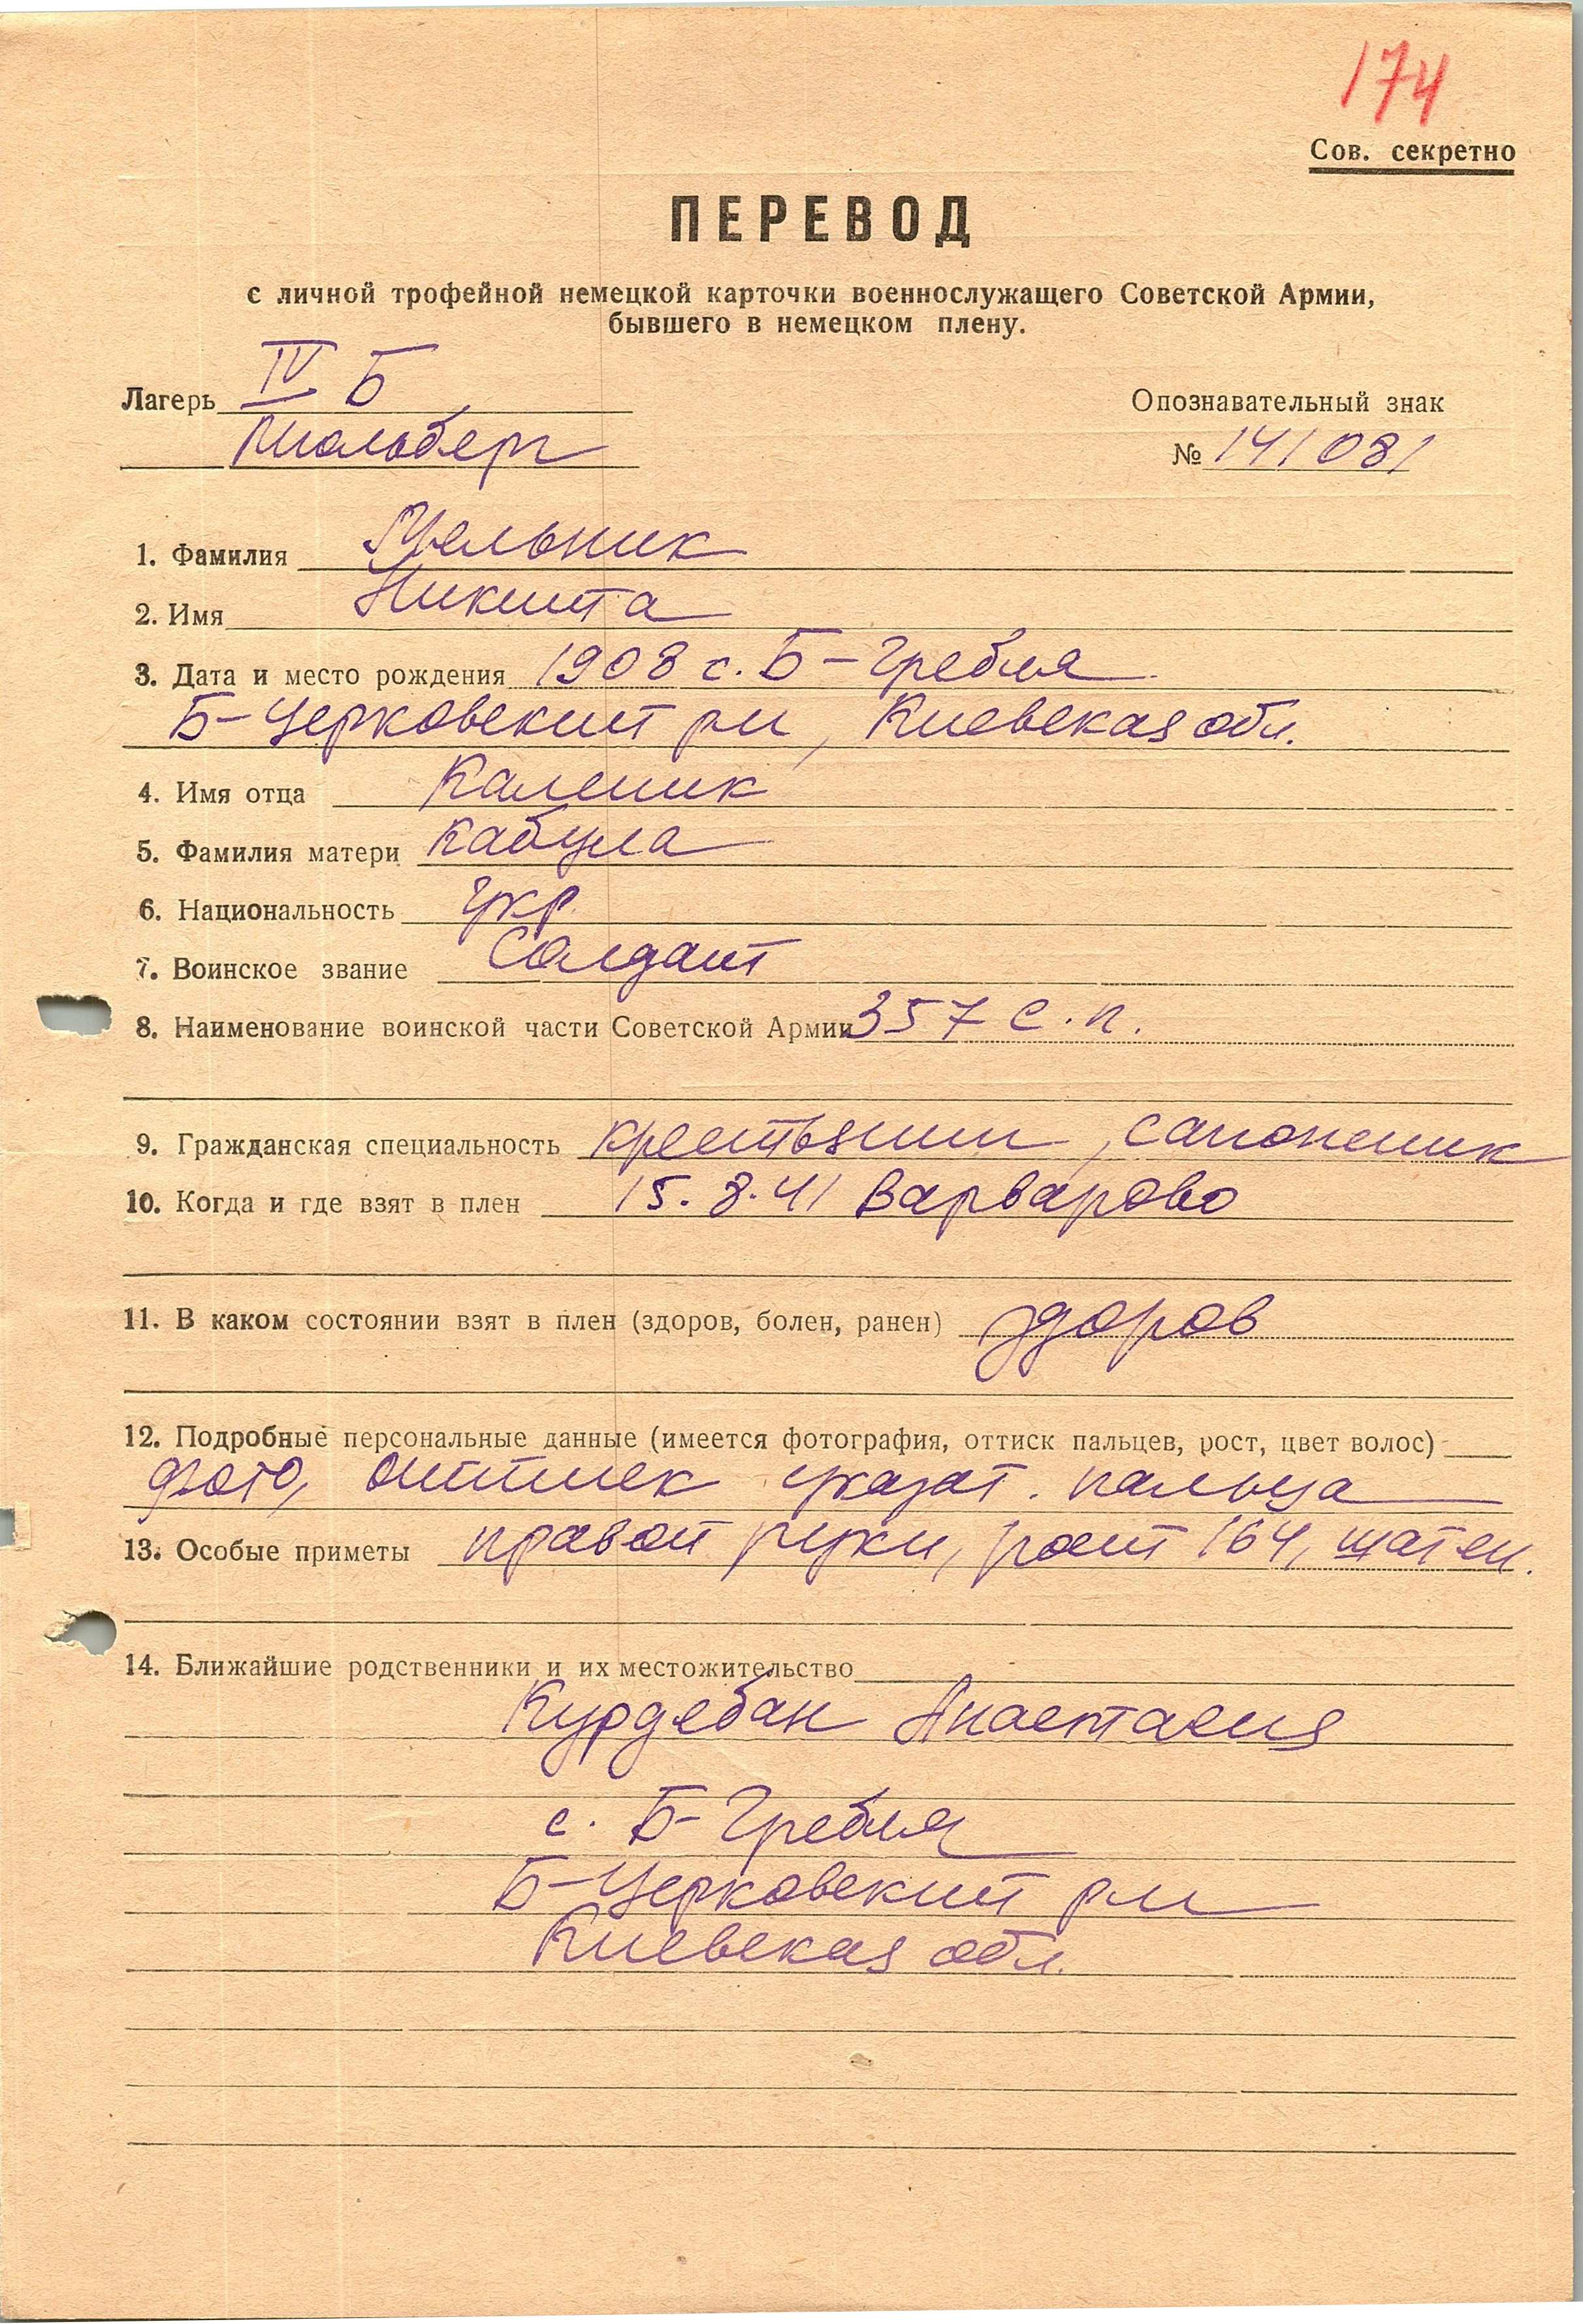 174
Сов. секретно
ПЕРЕВОД
с личной трофейной немецкой карточки военнослужащего Советской Армии,
бывшего в немецком плену.
Лагерь IV Б
Мюльберг
Опознавательный знак
№ 141081
1. Фамилия Мельник
2. Имя Никита
3. Дата и место рождения 1908 с. Б-Гребля
Б-Церковский р-н, Киевская обл.
4. Имя отца Каленик
5. Фамилия матери Кабула
6. Национальность укр.
7. Воинское звание Солдат
8. Наименование воинской части Советской Армии 357 с.п.
9. Гражданская специальность крестьянин, сапожник
10. Когда и где взят в плен 15.8.41 Варварово
11. В каком состоянии взят в плен (здоров, болен, ранен) здоров
12. Подробные персональные данные (имеется фотография, оттиск пальцев, рост, цвет волос)
фото, оттиск указат. пальца
13. Особые приметы правой руки, рост 164, шатен.
14. Ближайшие родственники и их местожительство
Курдебан Анастасия
с. Б-Гребля
Б-Церковский р-н
Киевская обл.